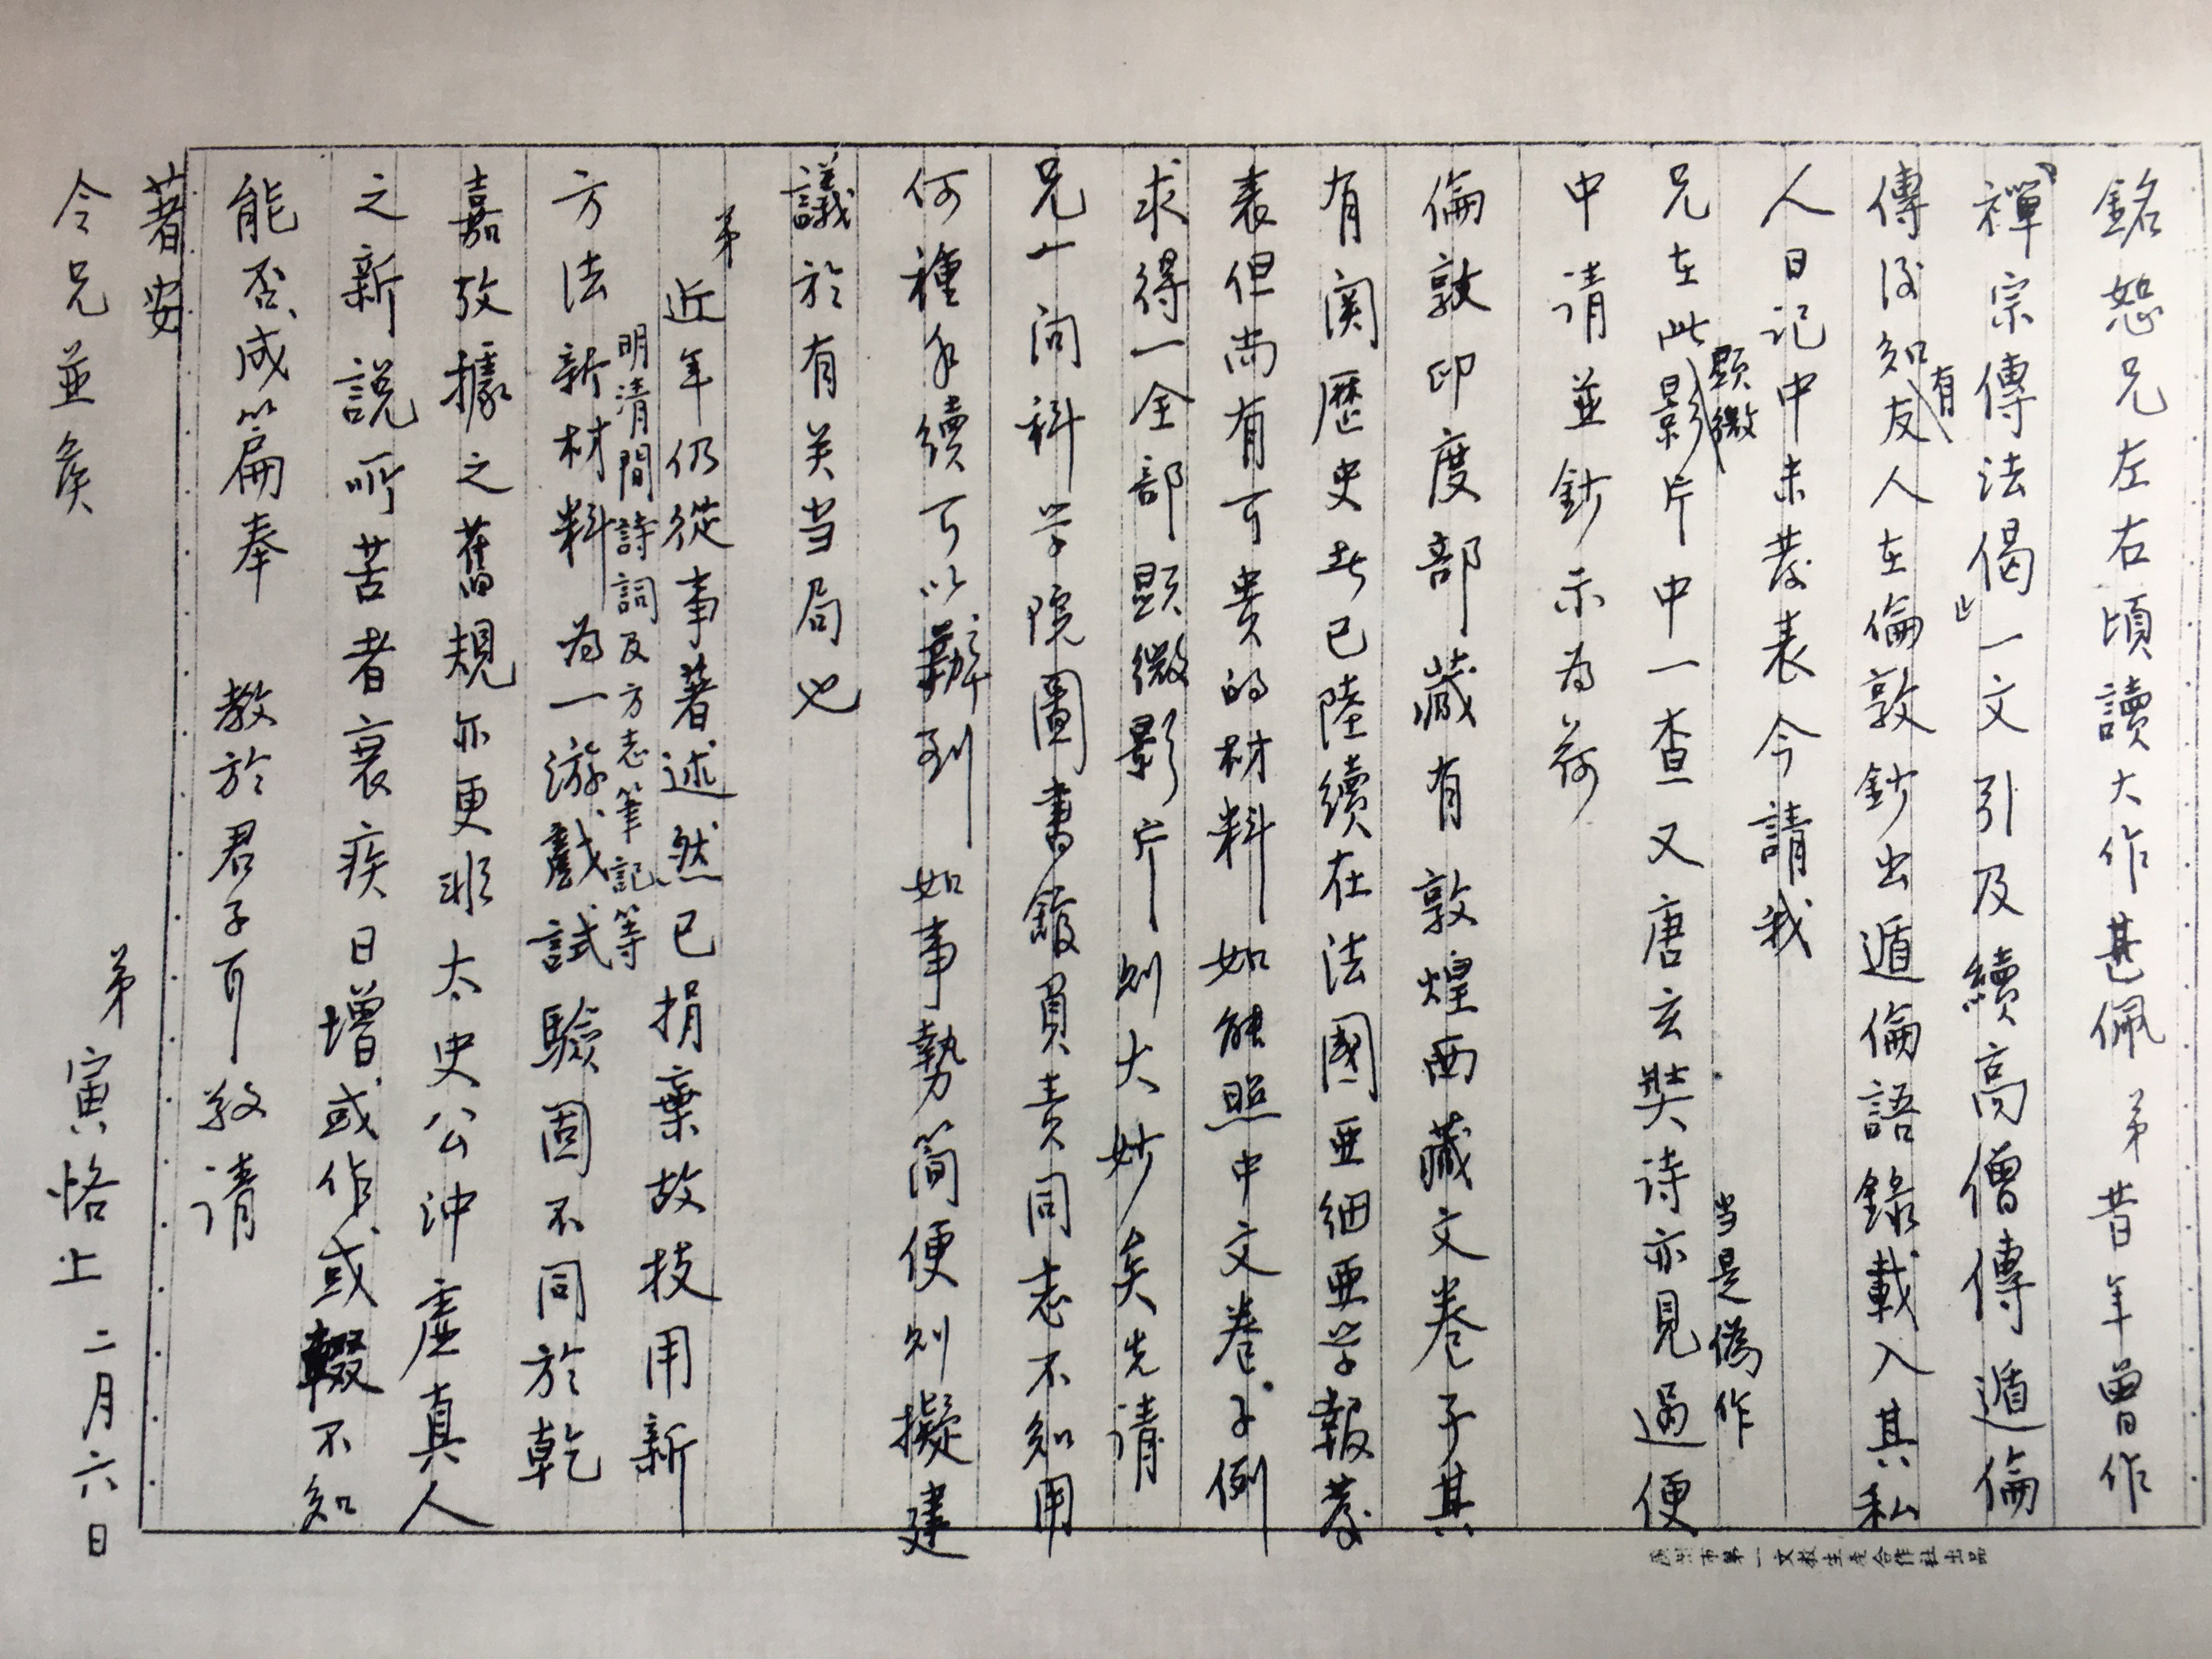 銘恕兄左右頃讀大作甚佩 弟昔年曾作
禪宗傳法偈一文引及續高僧傳遁倫
傳后知有友人在倫敦鈔出遁倫語錄載入其私
人日記中未发表今請我
兄在此顯微影片中一查又唐玄奘诗亦見過便
当是偽作
中请並鈔示为荷
倫敦印度部藏有敦煌西藏文卷子其
有関歷史者已陸續在法國亜细亜学報发
表但尚有可貴的材料如能照中文卷子例
求得一全部顯微影片则大妙矣先请
兄一问科学院圖書舘負责同志不知用
何種手續可以辦到如事勢简便则擬建
議於有关当局也
弟近年仍從事著述然已捐棄故技用新
方法新材料为一游戲試驗固不同於乾
明清間詩詞及方志筆記等
嘉考據之舊規亦更非太史公沖虚真人
之新說所苦者衰疾日增或作或輟不知
能否成篇奉 教於君子耳敬请
著安
令兄並候
弟 寅恪上 二月六日
广州市第一文教生产合作社出品